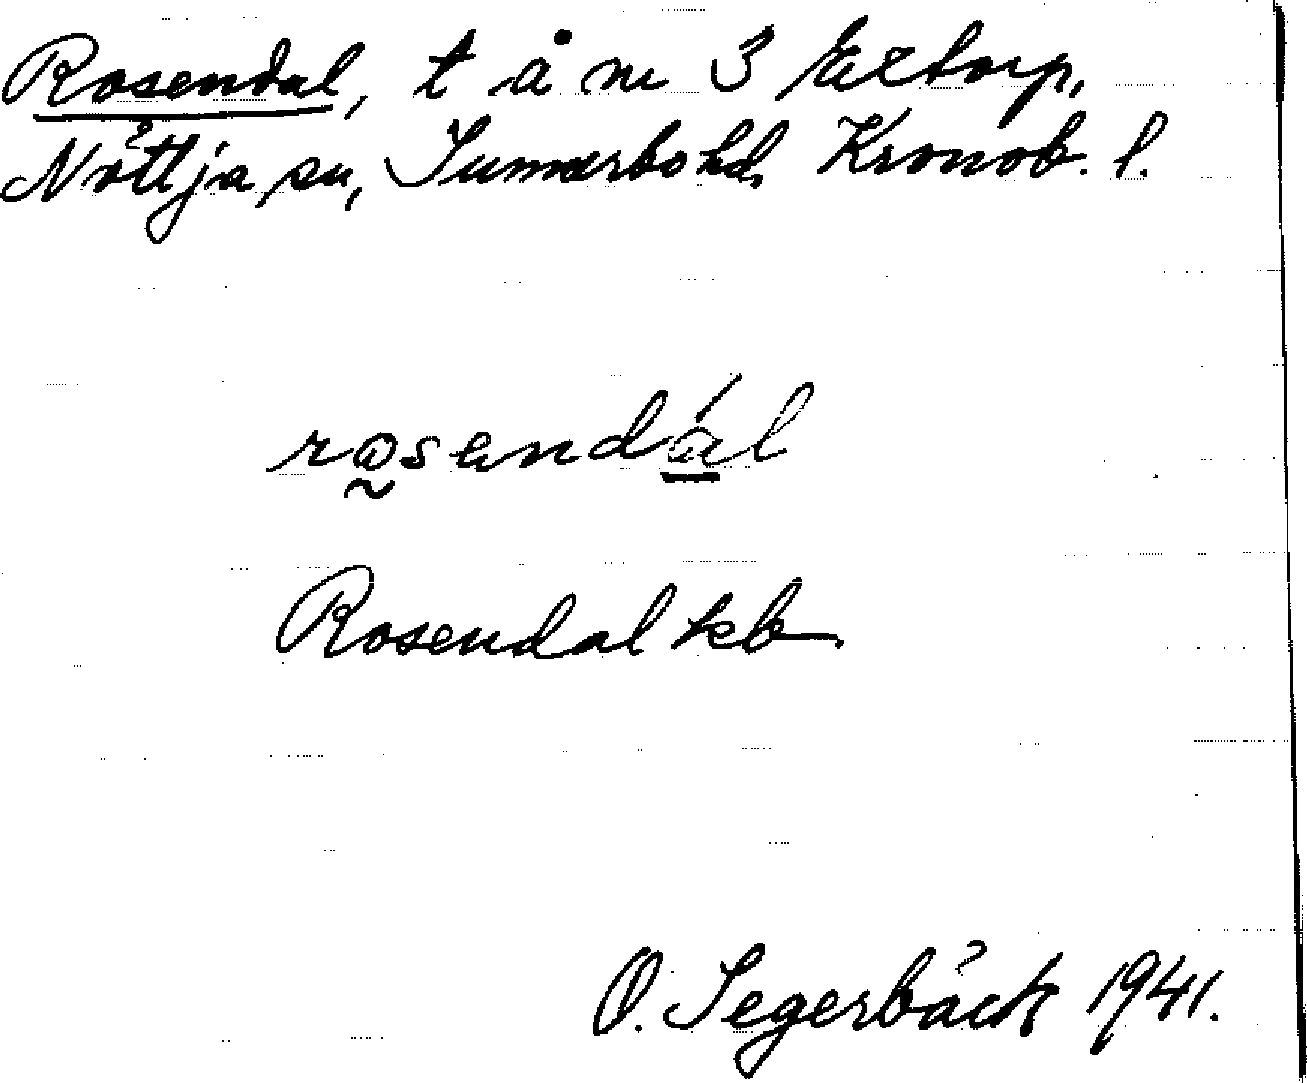 Rosendal, t å nr 3 Extorp,
Nöttja sn, Sunnerbo hd, Kronob. l.
rosendál
Rosendal kb
O. Segerbäck 1941.